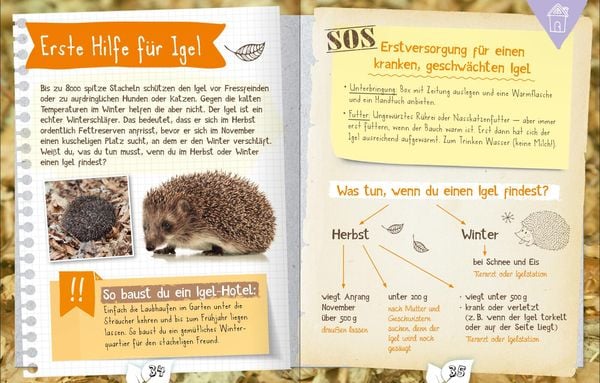 Erste Hilfe für Igel
Bis zu 8000 spitze Stacheln schützen den Igel vor Fressfeinden
oder zu aufdringlichen Hunden oder Katzen. Gegen die kalten
Temperaturen im Winter helfen die aber nicht. Der Igel ist ein
echter Winterschläfer. Das bedeutet, dass er sich im Herbst
ordentlich Fettreserven anfrisst, bevor er sich im November
einen kuscheligen Platz sucht, an dem er den Winter verschläft.
Weißt du, was du tun musst, wenn du im Herbst oder Winter
einen Igel findest?
!!
So baust du ein Igel-Hotel:
Einfach die Laubhaufen im Garten unter die
Sträucher kehren und bis zum Frühjahr liegen
lassen. So baust du ein gemütliches Winter-
quartier für den stacheligen Freund.
34
SOS
Erstversorgung für einen
kranken, geschwächten Igel
• Unterbringung: Box mit Zeitung auslegen und eine Wärmflasche
und ein Handtuch anbieten.
• Futter: Ungewürztes Rührei oder Nasskatzenfutter – aber immer
erst füttern, wenn der Bauch warm ist. Erst dann hat sich der
Igel ausreichend aufgewärmt. Zum Trinken Wasser (keine Milch!).
Was tun, wenn du einen Igel findest?
Herbst
Winter
bei Schnee und Eis
Tierarzt oder Igelstation
wiegt Anfang
November
über 500 g
draußen lassen
unter 200 g
nach Mutter und
Geschwistern
suchen, denn der
Igel wird noch
gesäugt
• wiegt unter 500 g
• krank oder verletzt
(z. B. wenn der Igel torkelt
oder auf der Seite liegt)
Tierarzt oder Igelstation
35